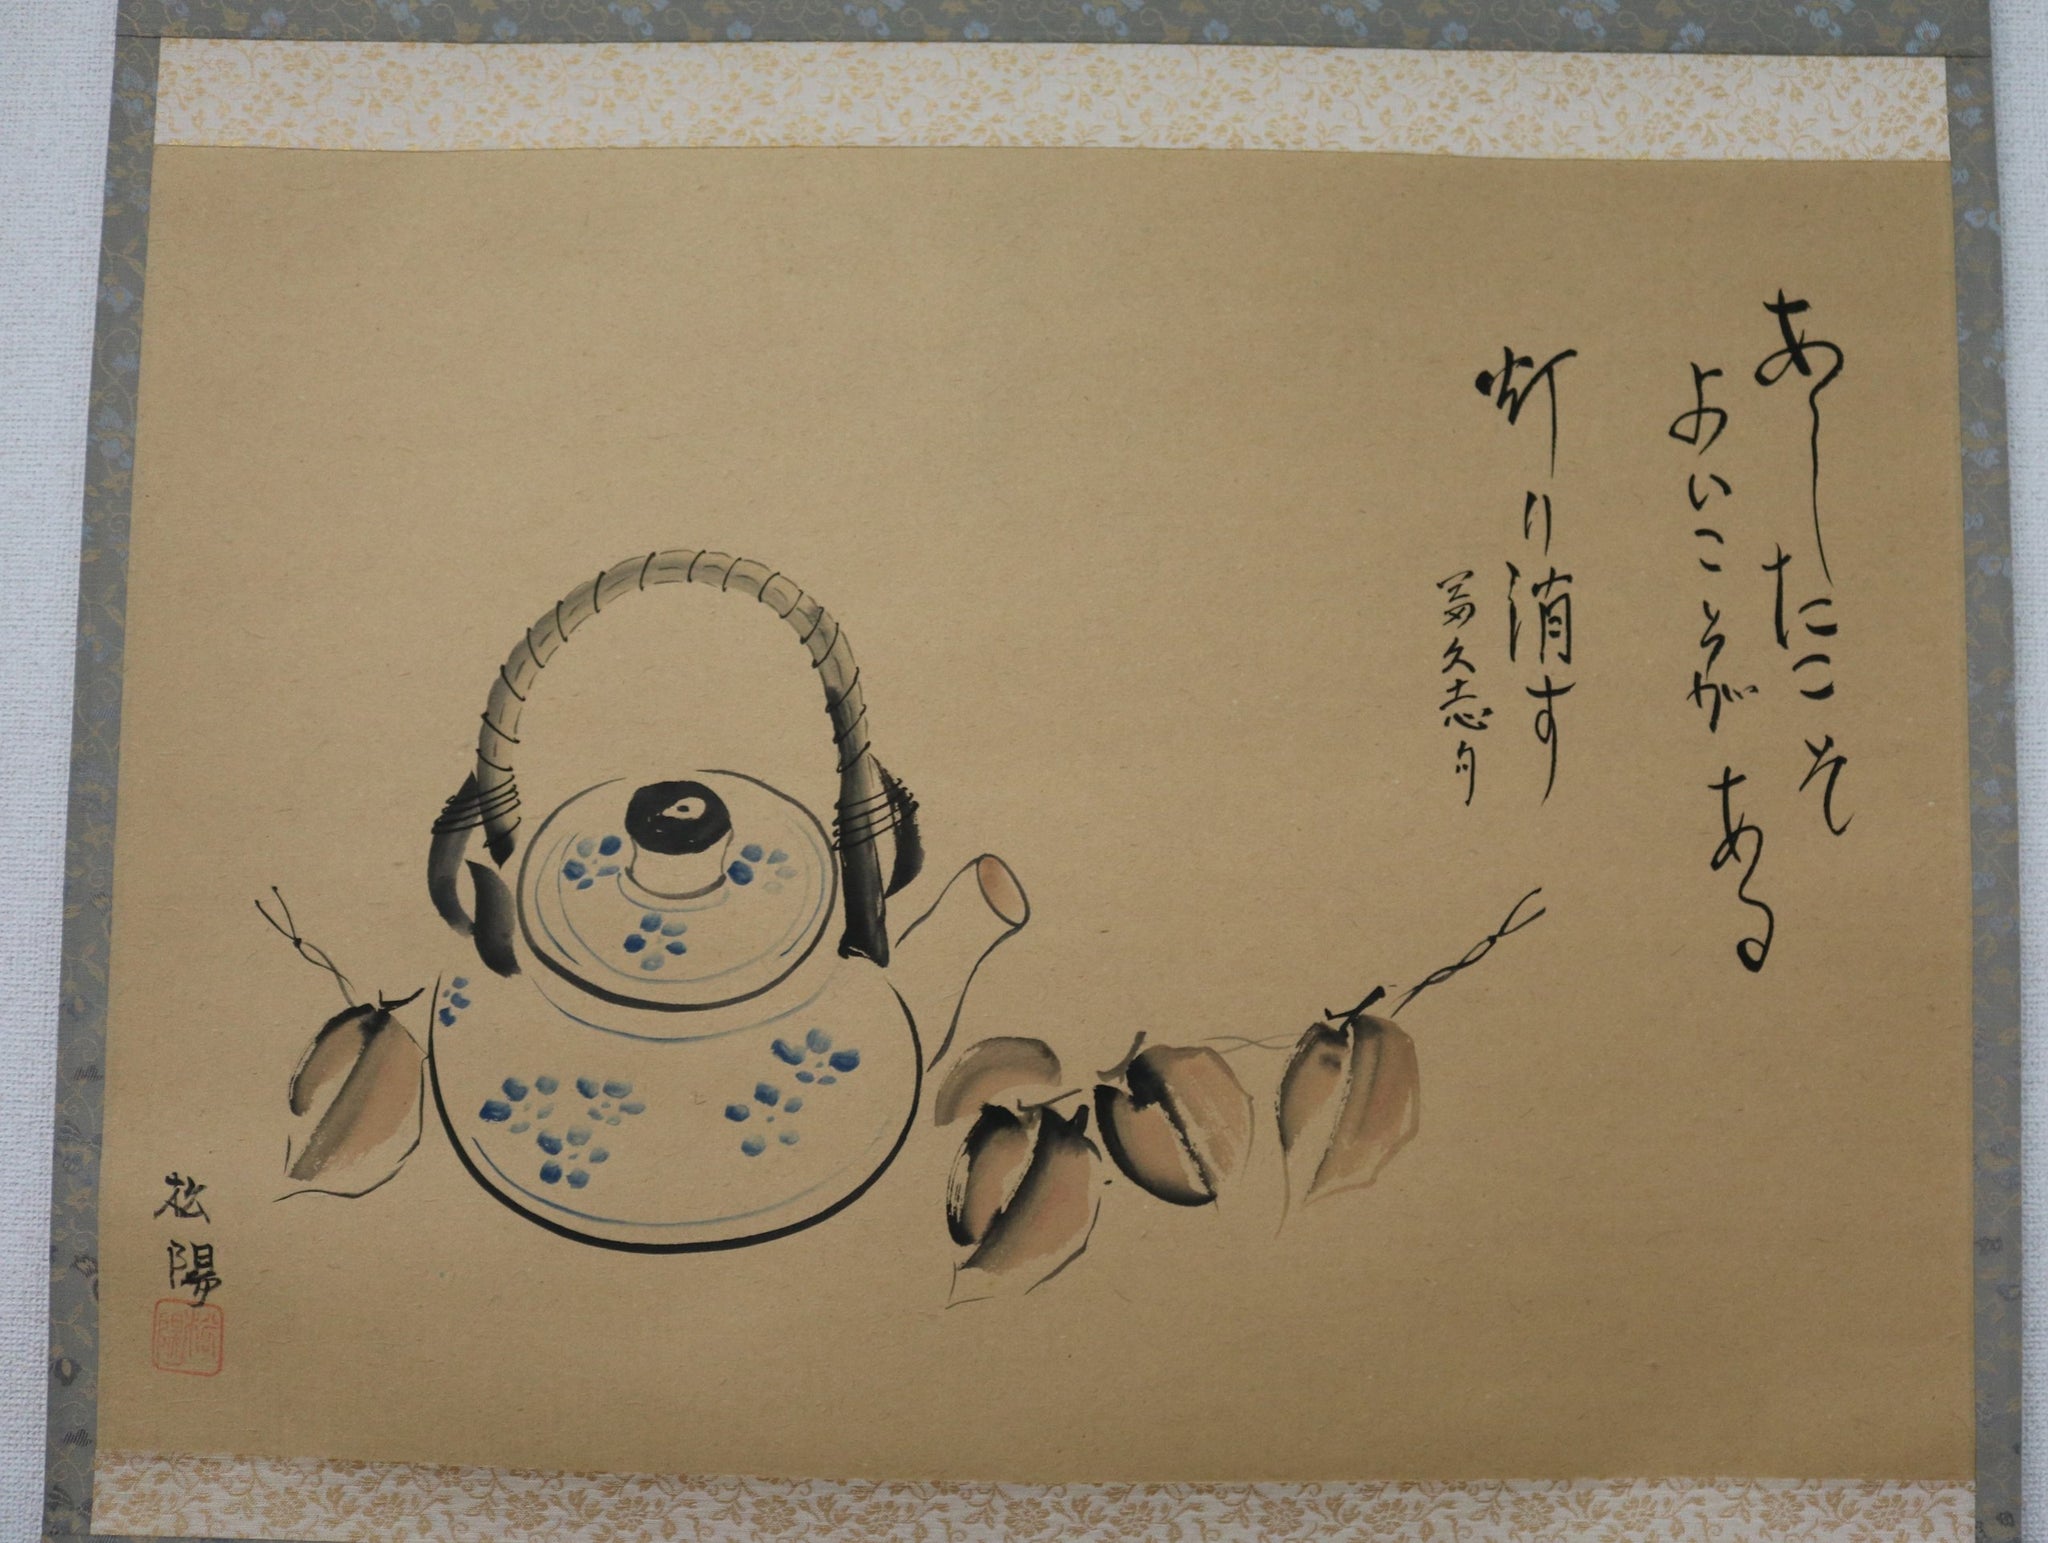 あしたこそ
よいことがある
灯り消す
富久志句
松陽
松陽